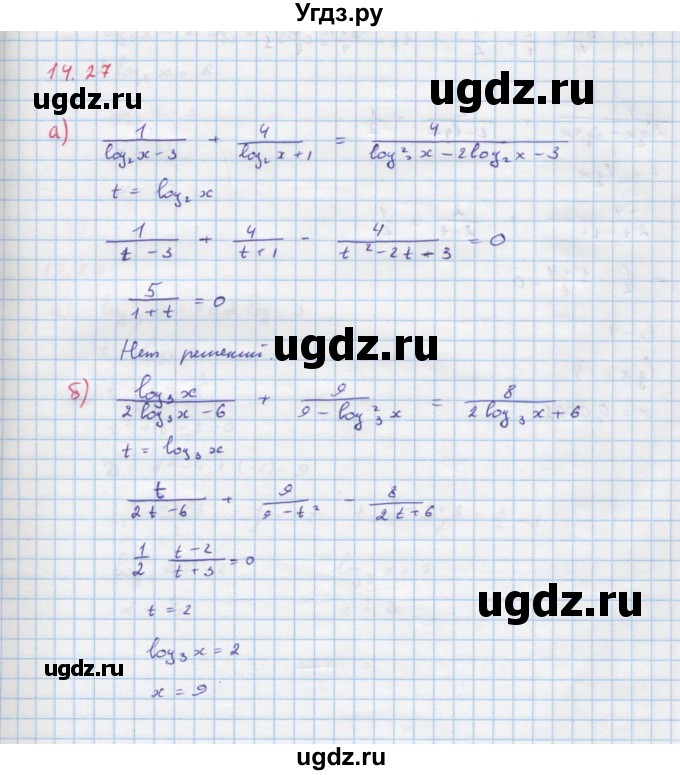 Угдз.ру
14.27
ugdz.ru ugdz.ru
а) 1/(log₂x-3) + 4/(log₂x+1) = 4/(log²₂x-2log₂x-3)
t = log₂x
1/(t-3) + 4/(t+1) - 4/(t²-2t-3) = 0
5/(1+t) = 0
Нет решений.
ugdz.ru
б) log₃x/(2log₃x-6) + 9/(9-log²₃x) = 8/(2log₃x+6)
t = log₃x
t/(2t-6) + 9/(9-t²) - 8/(2t+6)
1/2 (t-2)/(t+3) = 0
t = 2
ugdz.ru
log₃x = 2
ugdz.ru
x = 9
ugdz.ru